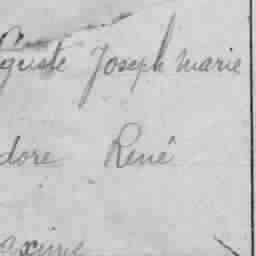 guste Joseph Marie
dore René
axime